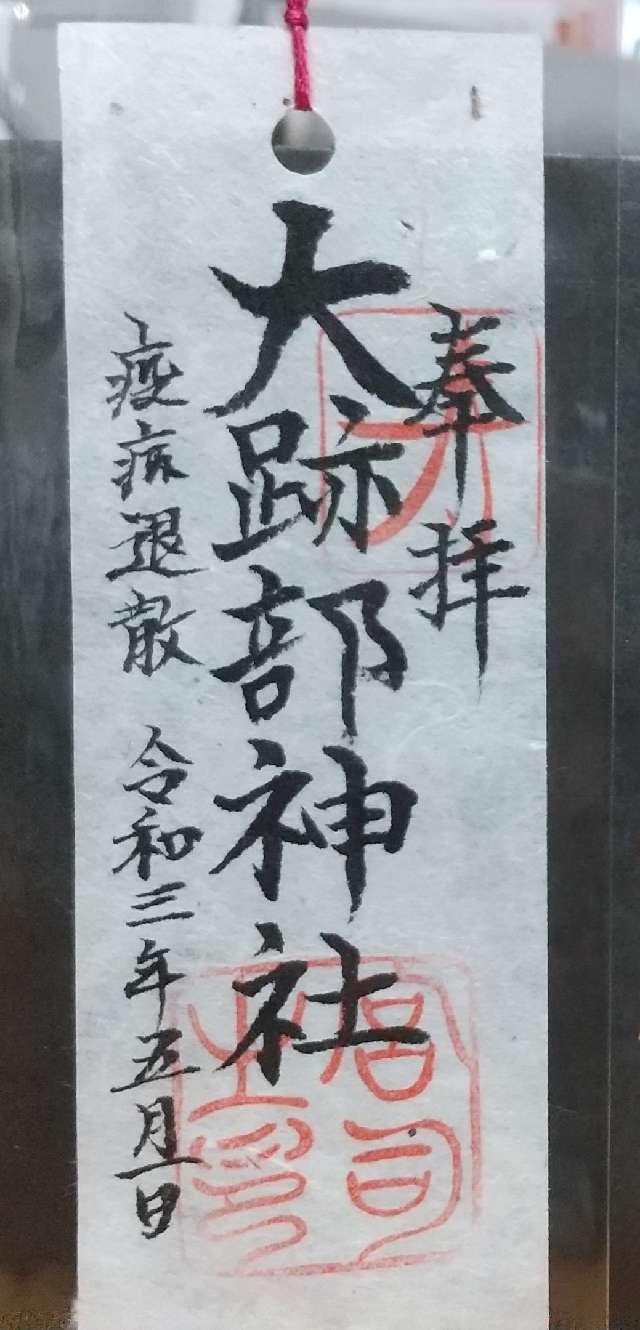 奉拝
大跡部神社
疫病退散 令和三年五月一日
宮司之印